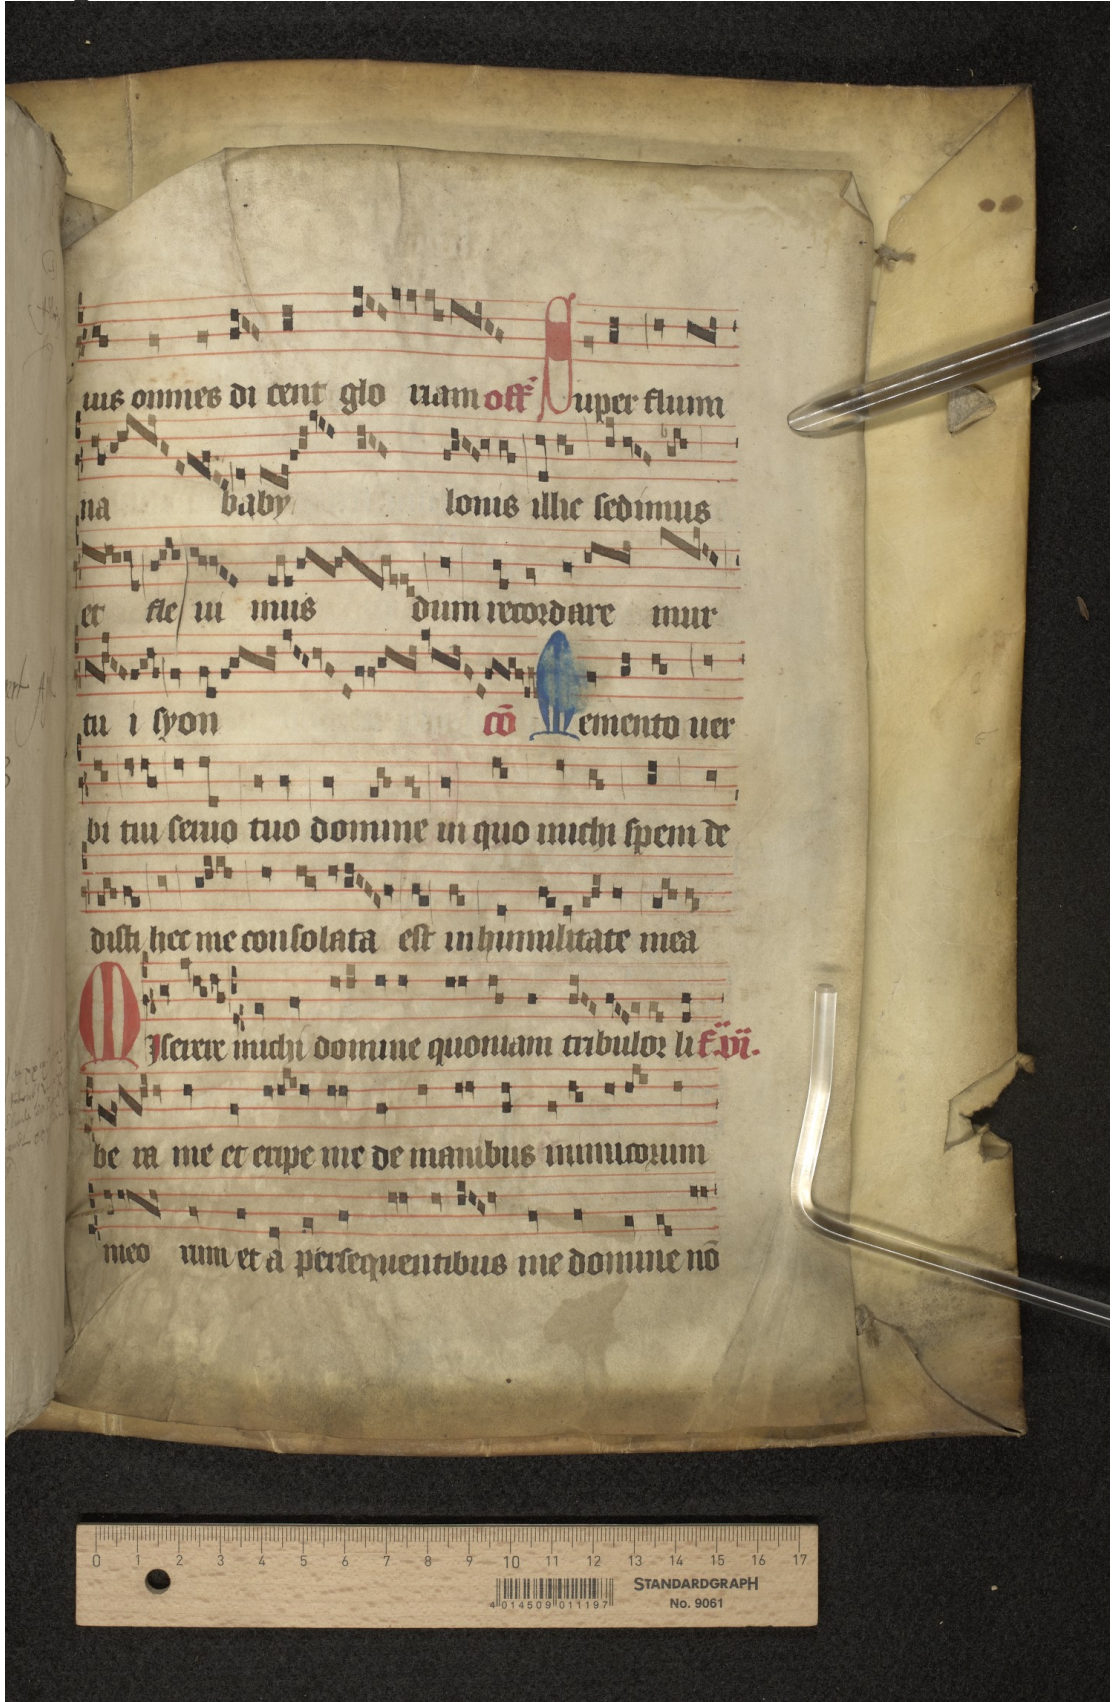 ius omnes di cent glo riam off̄ Super flumi
na baby lonis illic sedimus
et fle ui mus dum recordare mur
tu i syon cō Memento uer
bi tui seruo tuo domine in quo michi spem de
disti hec me consolata est in humilitate mea
Miserere michi domine quoniam tribulor li f. vi.
be ra me et eripe me de manibus inimicorum
meo rum et a persequentibus me domine nō
0 1 2 3 4 5 6 7 8 9 10 11 12 13 14 15 16 17
STANDARDGRAPH
No. 9061
4 014509 011197